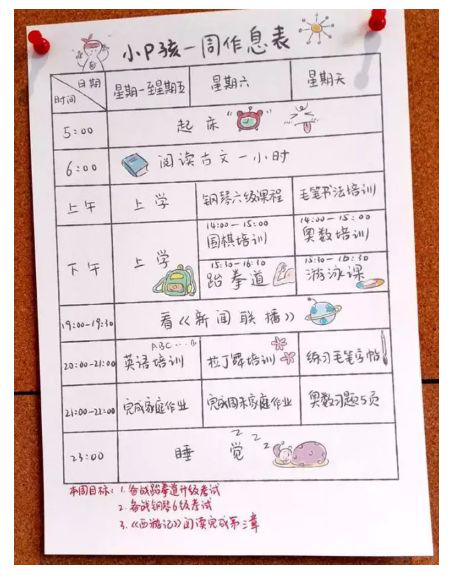 小P孩一周作息表
日期
时间
星期一至星期五 星期六 星期天
5:00 起床
6:00 阅读古文一小时
上午 上学 钢琴六级课程 毛笔书法培训
下午 上学
14:00-15:00 围棋培训
14:00-15:00 奥数培训
15:30-16:30 跆拳道
15:30-16:30 游泳课
19:00-19:30 看《新闻联播》
ABC
20:00-21:00 英语培训 拉丁舞培训 练习毛笔字帖
21:00-22:00 完成家庭作业 完成周末家庭作业 奥数习题5页
23:00 睡觉 z z z
本周目标: 1. 备战跆拳道升级考试
2. 备战钢琴6级考试
3.《西游记》阅读完成第三章